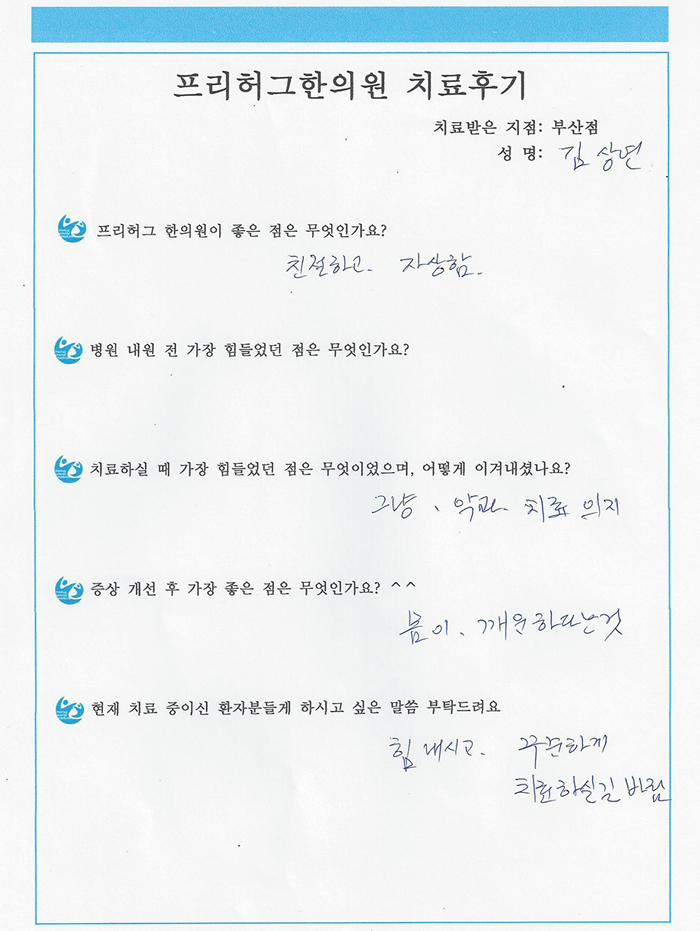 프리허그한의원 치료후기
치료받은 지점: 부산점
성 명: 김상연
프리허그 한의원이 좋은 점은 무엇인가요?
친절하고. 자상함.
병원 내원 전 가장 힘들었던 점은 무엇인가요?
치료하실 때 가장 힘들었던 점은 무엇이었으며, 어떻게 이겨내셨나요?
그냥、약과 치료 의지
증상 개선 후 가장 좋은 점은 무엇인가요? ^^
몸이、개운하다는것
현재 치료 중이신 환자분들게 하시고 싶은 말씀 부탁드려요
힘 내시고. 꾸준하게
치료하실길 바람